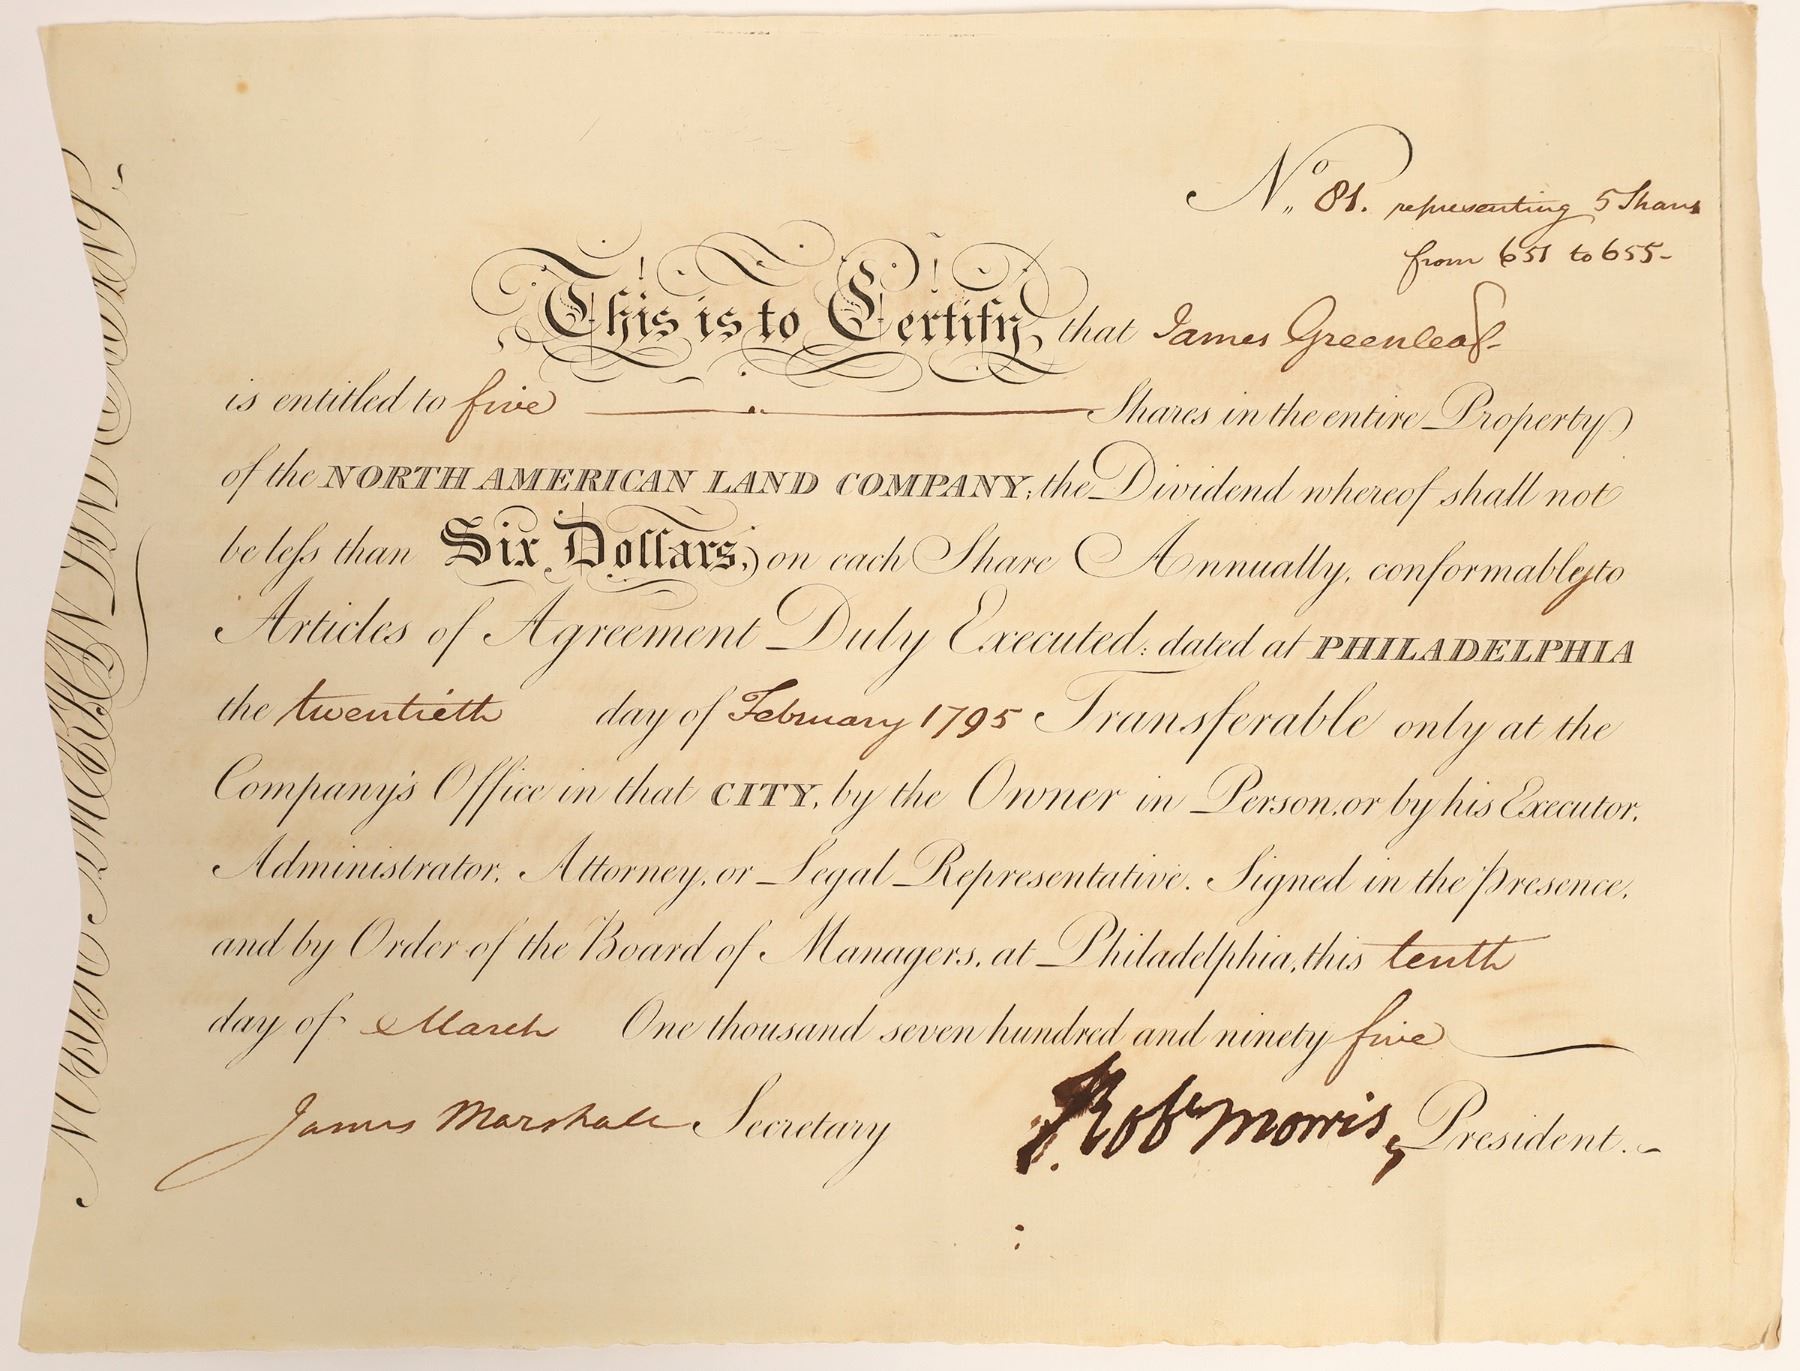 No. 81. representing 5 Shares
from 651 to 655-
This is to Certify, that James Greenleaf
is entitled to five Shares in the entire Property
of the NORTH AMERICAN LAND COMPANY; the Dividend whereof shall not
be less than Six Dollars, on each Share Annually, conformably to
Articles of Agreement Duly Executed: dated at PHILADELPHIA
the twentieth day of February 1795 Transferable only at the
Company's Office in that CITY, by the Owner in Person, or by his Executor,
Administrator, Attorney, or Legal Representative. Signed in the presence,
and by Order of the Board of Managers, at Philadelphia, this tenth
day of March One thousand seven hundred and ninety five
James Marshall Secretary Robt Morris, President.
NORTH AMERICAN LAND COMPANY